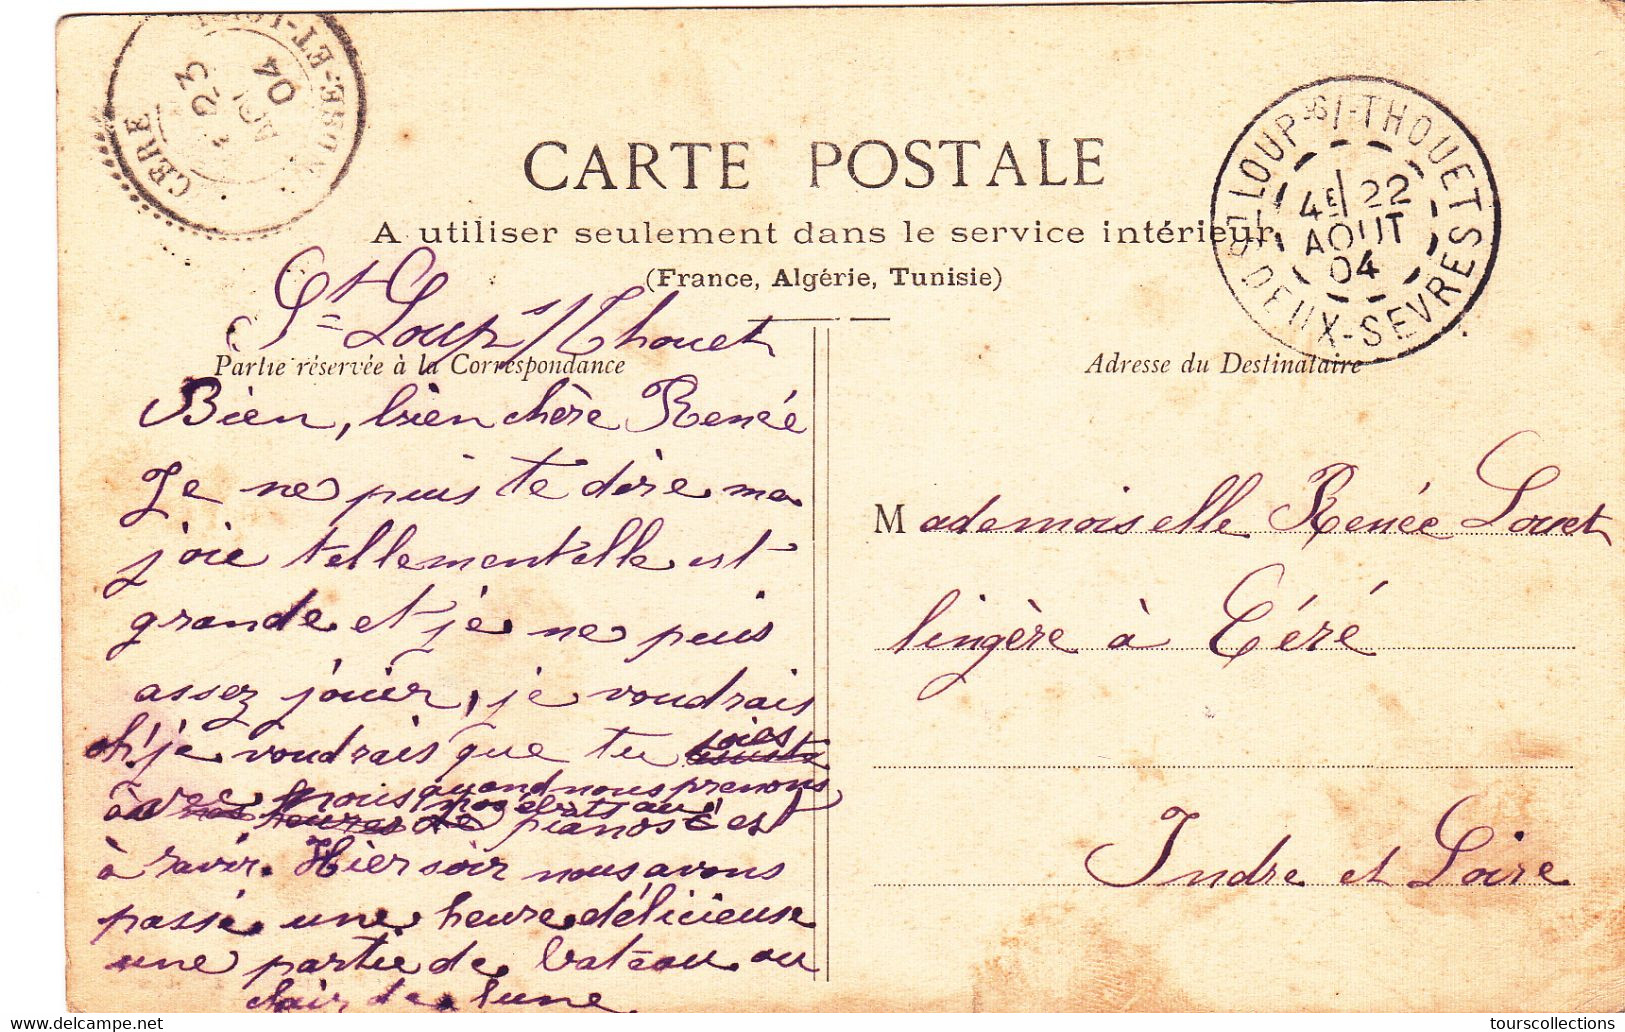 CERE
INDRE-ET-LOIRE
23
04
CARTE POSTALE
A utiliser seulement dans le service intérieur
(France, Algérie, Tunisie)
ST LOUP-S/-THOUET
4E/ 22
AOUT
04
DEUX-SEVRES
St= Loup s/Thouet
Partie réservée à la Correspondance
Bien, bien chère Renée
Je ne puis te dire ma
joie tellement elle est
grande et je ne puis
assez jouir, je voudrais
oh! je voudrais que tu sois
avec nous quand nous prenons
nos ébats au
pianos c'est
à ravir. Hier soir nous avons
passé une heure délicieuse
une partie de bateau au
clair de lune
Adresse du Destinataire
Mademoiselle Renée Louet
lingère à Céré
Indre et Loire
www.delcampe.net
tourscollections